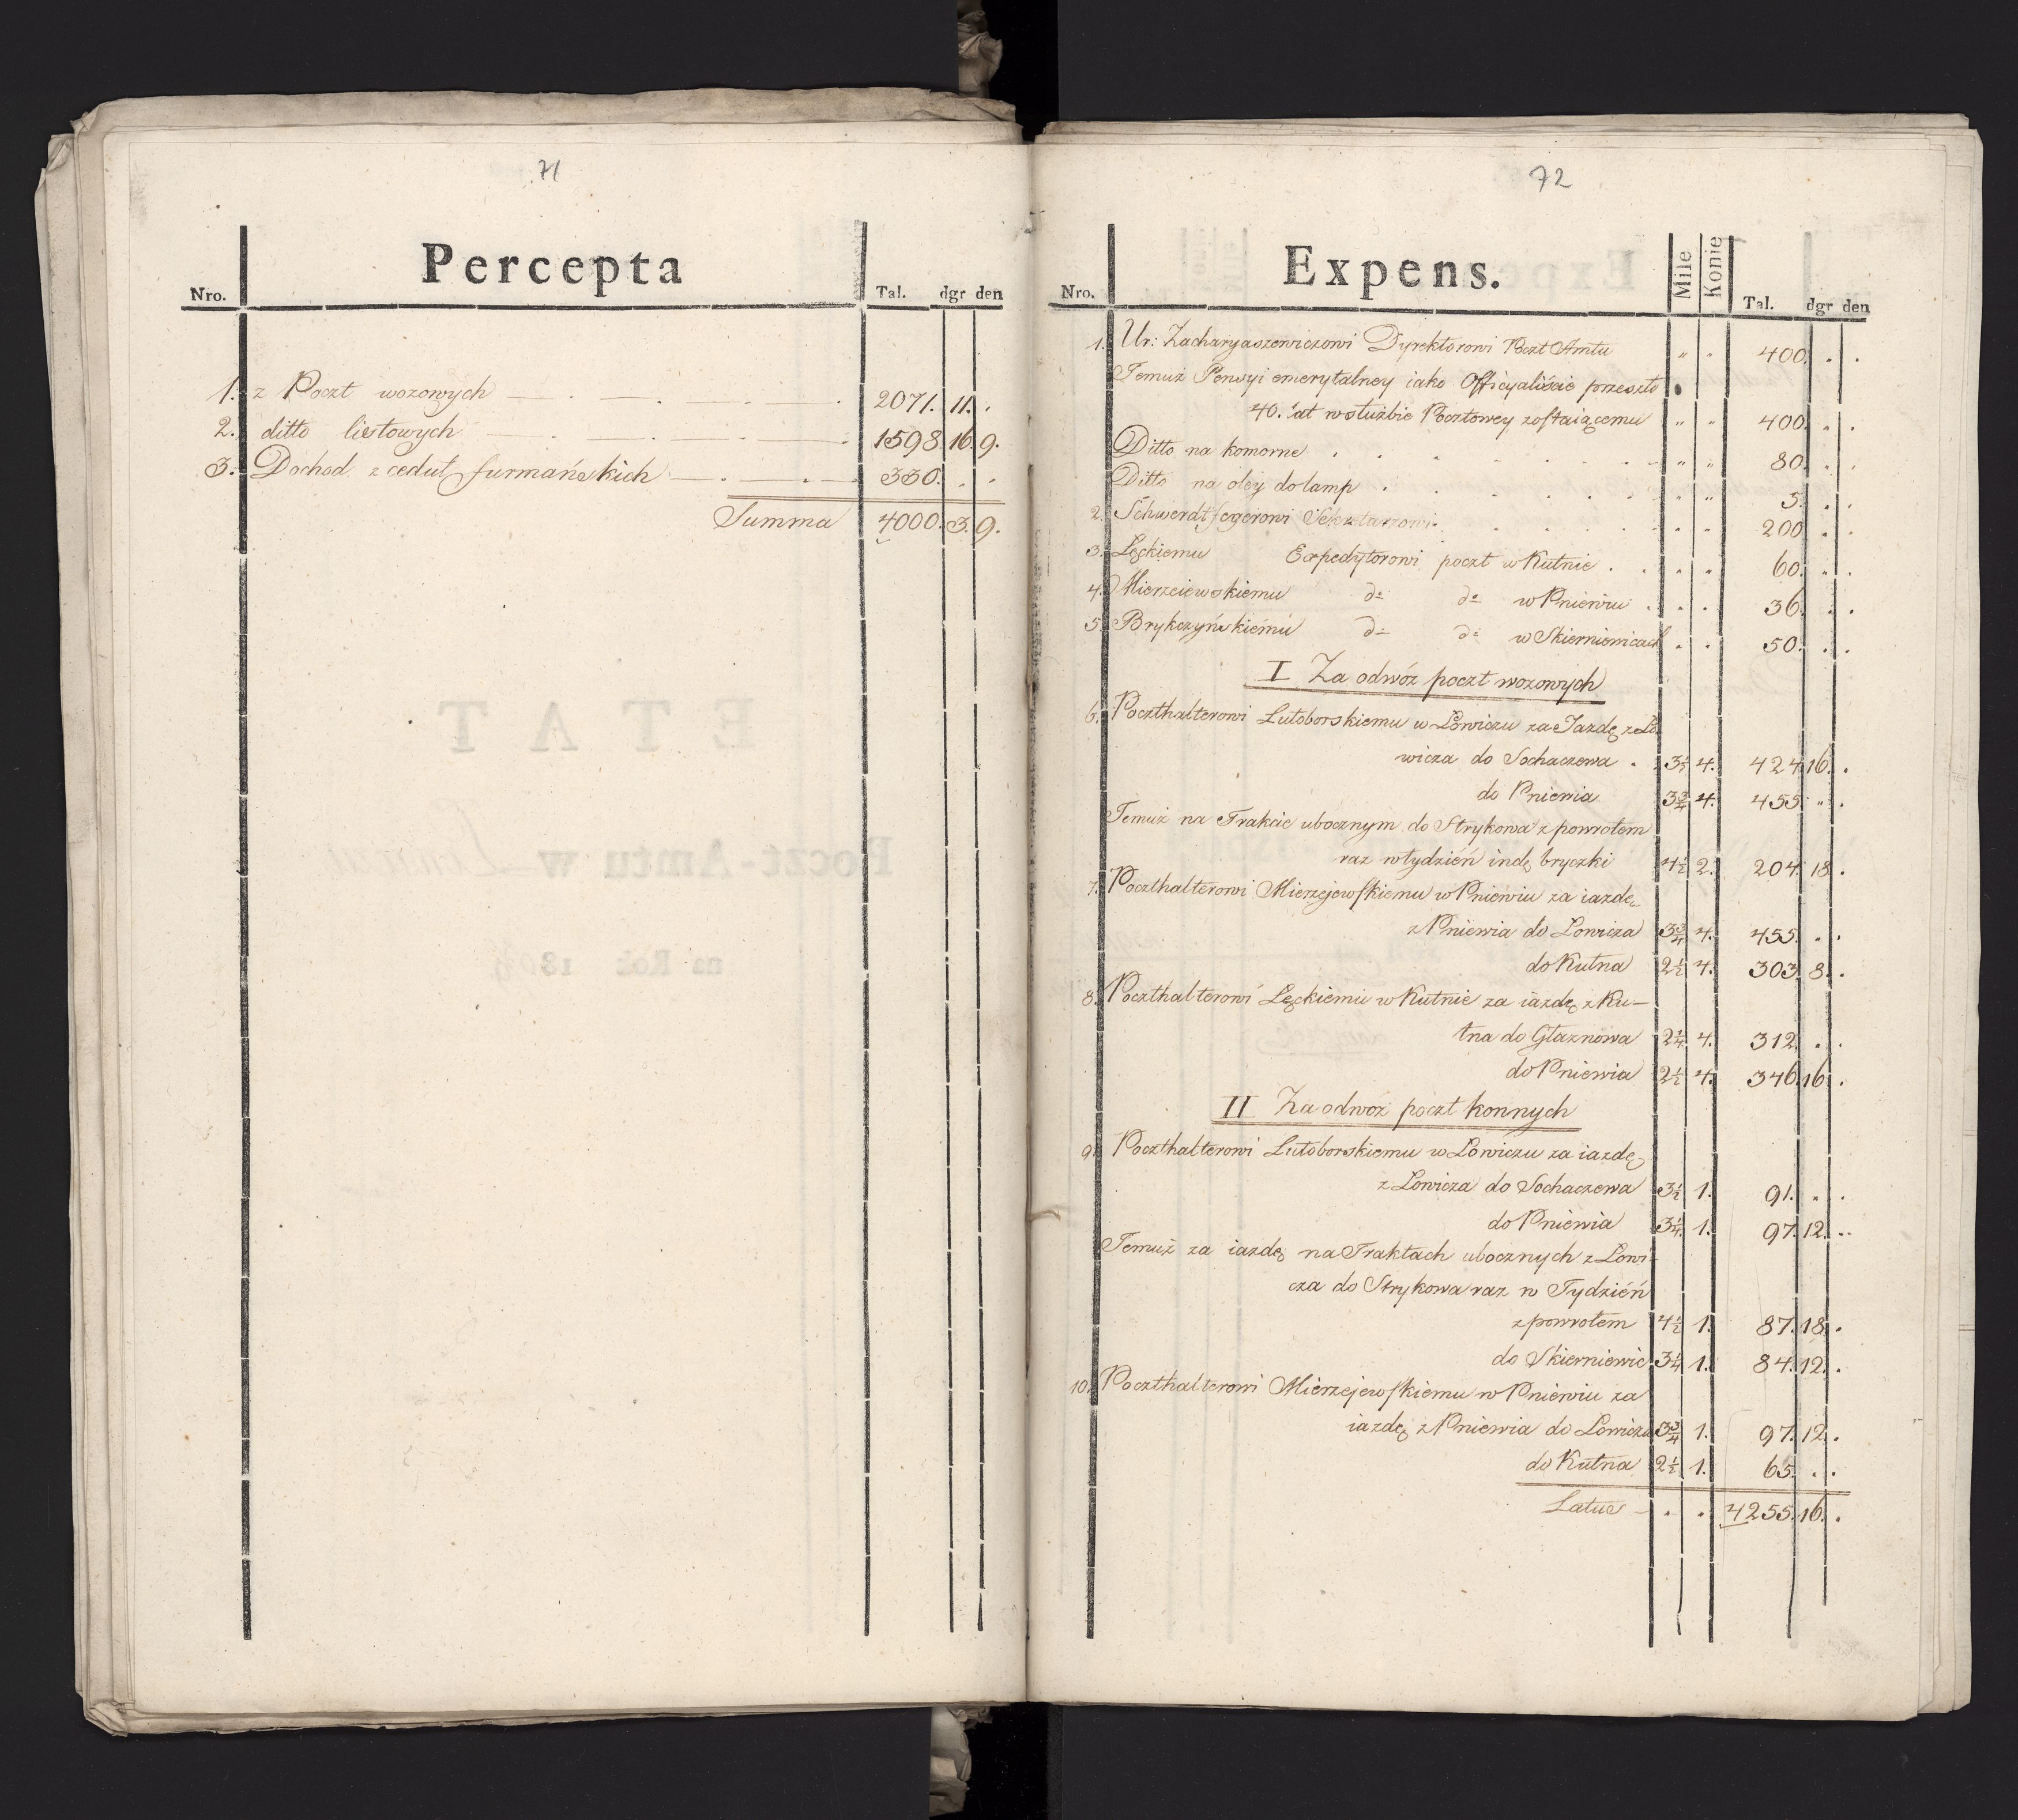 71
Percepta
Nro. Tal. dgr den
1. z Poczt wozowych 2071. 11. .
2. ditto listowych 1598. 16. 9.
3. Dochod z ceduł furmańskich 330. . .
Summa 4000. 3. 9.
72
Expens.
Nro. Mile Konie Tal. dgr den
1. Ur: Zacharyaszewiczowi Dyrektorowi Poczt Amtu " " 400. . .
Temuż Pensyi emerytalney iako Officyaliście przeszło
40. lat w służbie Pocztowey zostaiącemu " " 400. . .
Ditto na komorne " " 80. . .
Ditto na oley do lamp " " 5. . .
2. Schwerdtfegerowi Sekretarzowi " " 200 . .
3. Lęckiemu Expedytorowi poczt w Kutnie " " 60. . .
4. Mierzeiewskiemu do do w Pniewiu " " 36. . .
5. Brykczyńskiemu do do w Skierniewicach " " 50. . .
I Za odwóz poczt wozowych
6. Poczthalterowi Lutoborskiemu w Łowiczu za Jazdę z Ło
wicza do Sochaczewa 3½ 4. 424. 16. .
do Pniewia 3¾ 4. 455. " .
Temuż na Trakcie ubocznym do Strykowa z powrotem
raz w tydzień indę bryczki 4½ 2. 204. 18. .
7. Poczthalterowi Mierzejewskiemu w Pniewiu za iazdę
z Pniewia do Łowicza 3¾ 4. 455. " .
do Kutna 2½ 4. 303. 8. .
8. Poczthalterowi Lęckiemu w Kutnie za iazdę z Ku-
tna do Głaznowa 2¼ 4. 312. . .
do Pniewia 2½ 4. 346. 16. .
II Za odwoz poczt konnych
9. Poczthalterowi Lutoborskiemu w Łowiczu za iazdę
z Łowicza do Sochaczewa 3½ 1. 91. " .
do Pniewia 3¼ 1. 97. 12. .
Temuż za iazdę na Traktach ubocznych z Łowi-
cza do Strykowa raz w Tydzień
z powrotem 4½ 1. 87. 18. .
do Skierniewic 3¼ 1. 84. 12. .
10. Poczthalterowi Mierzejewskiemu w Pniewiu za
iazdę z Pniewia do Łowicza 3¾ 1. 97. 12. .
do Kutna 2½ 1. 65. . .
Latus . . 4255. 16. .